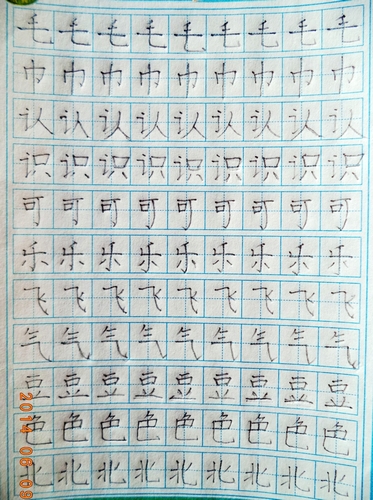 毛毛毛毛毛毛毛毛毛
巾巾巾巾巾巾巾巾巾
认认认认认认认认认
识识识识识识识识识
可可可可可可可可可
乐乐乐乐乐乐乐乐乐
飞飞飞飞飞飞飞飞飞
气气气气气气气气气
豆豆豆豆豆豆豆豆豆
色色色色色色色色色
北北北北北北北北北
2014 06 09